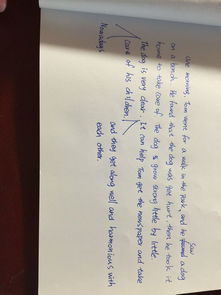 One morning, Tom went for a walk in the park, and he found a dog
saw
on a bench. He found that the dog was got hurt, then he took it
home to take care of. The dog is grow strong little by little.
The dog is very clear. It can help Tom get the newspaper and take
care of his children.
Nowadays
and they get along well and harmonious with
each other.